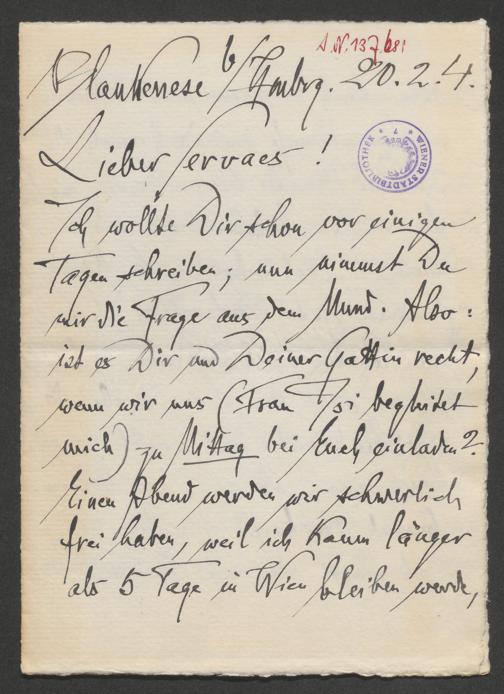 J.N. 137.681
Blankenese b/Hmbrg. 20.2.4.
WIENER STADTBIBLIOTHEK
Lieber Servaes!
Ich wollte Dir schon vor einigen
Tagen schreiben; nun nimmst Du
mir die Frage aus dem Mund. Also:
ist es Dir und Deiner Gattin recht,
wenn wir uns (Frau Isi begleitet
mich) zu Mittag bei Euch einladen?
Einen Abend werden wir schwerlich
frei haben, weil ich kaum länger
als 5 Tage in Wien bleiben werde,